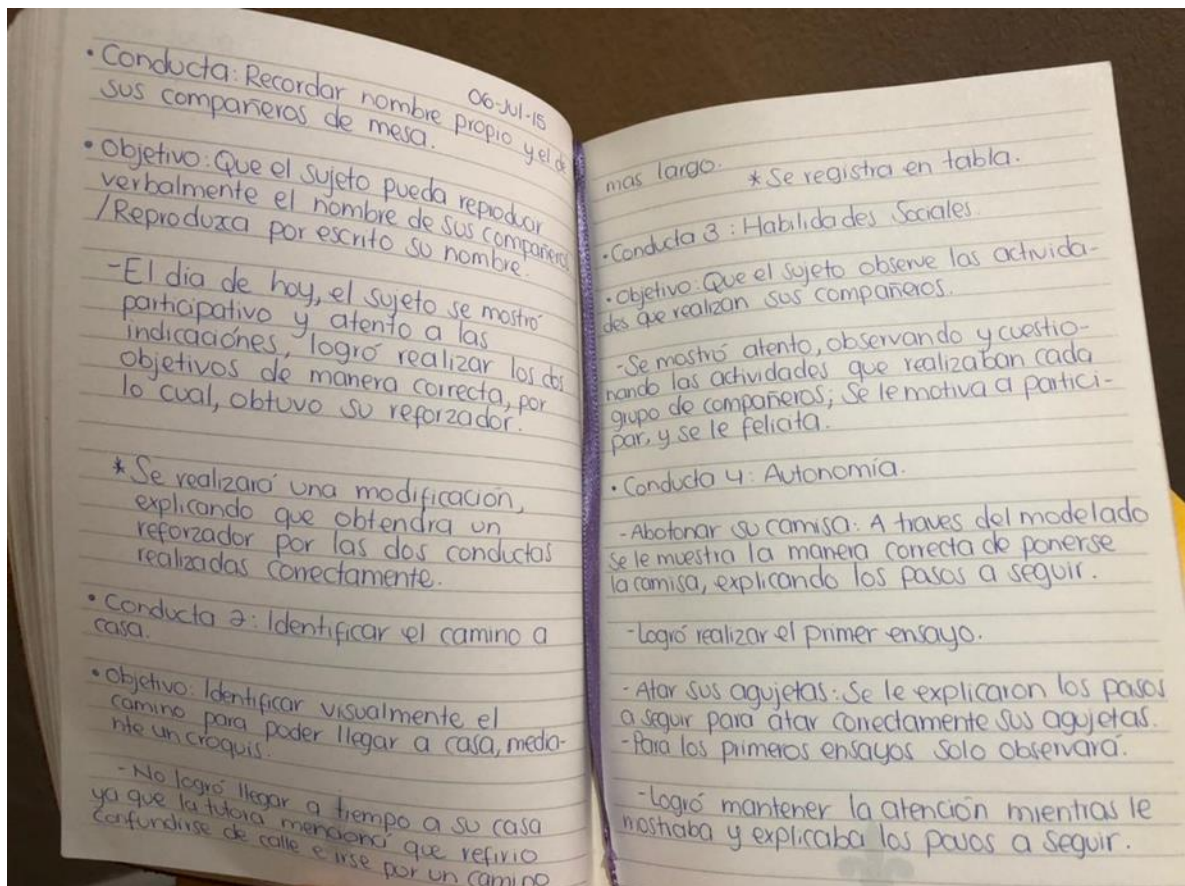 06-Jul-15
• Conducta: Recordar nombre propio y el de
sus compañeros de mesa.
• Objetivo: Que el sujeto pueda reproducir
verbalmente el nombre de sus compañeros
/Reproduzca por escrito su nombre.
-El dia de hoy, el sujeto se mostró
participativo y atento a las
indicaciónes, logró realizar los dos
objetivos de manera correcta, por
lo cual, obtuvo su reforzador.
* Se realizará una modificación,
explicando que obtendra un
reforzador por las dos conductas
realizadas correctamente.
• Conducta 2: Identificar el camino a
casa.
• Objetivo: Identificar visualmente el
camino para poder llegar a casa, media-
nte un croquis.
-No logró llegar a tiempo a su casa
ya que la tutora mencionó que refirio
confundirse de calle e irse por un camino
mas largo.
* Se registra en tabla.
• Conducta 3: Habilidades Sociales.
• Objetivo: Que el sujeto observe las activida-
des que realizan sus compañeros.
-Se mostró atento, observando y cuestio-
nando las actividades que realizaban cada
grupo de compañeros; Se le motiva a partici-
par, y se le felicita.
• Conducta 4: Autonomía.
-Abotonar su camisa: A traves del modelado
se le muestra la manera correcta de ponerse
la camisa, explicando los pasos a seguir.
-Logró realizar el primer ensayo.
- Atar sus agujetas: Se le explicaron los pasos
a seguir para atar correctamente sus agujetas.
-Para los primeros ensayos solo observará.
-Logró mantener la atención mientras le
mostraba y explicaba los pasos a seguir.